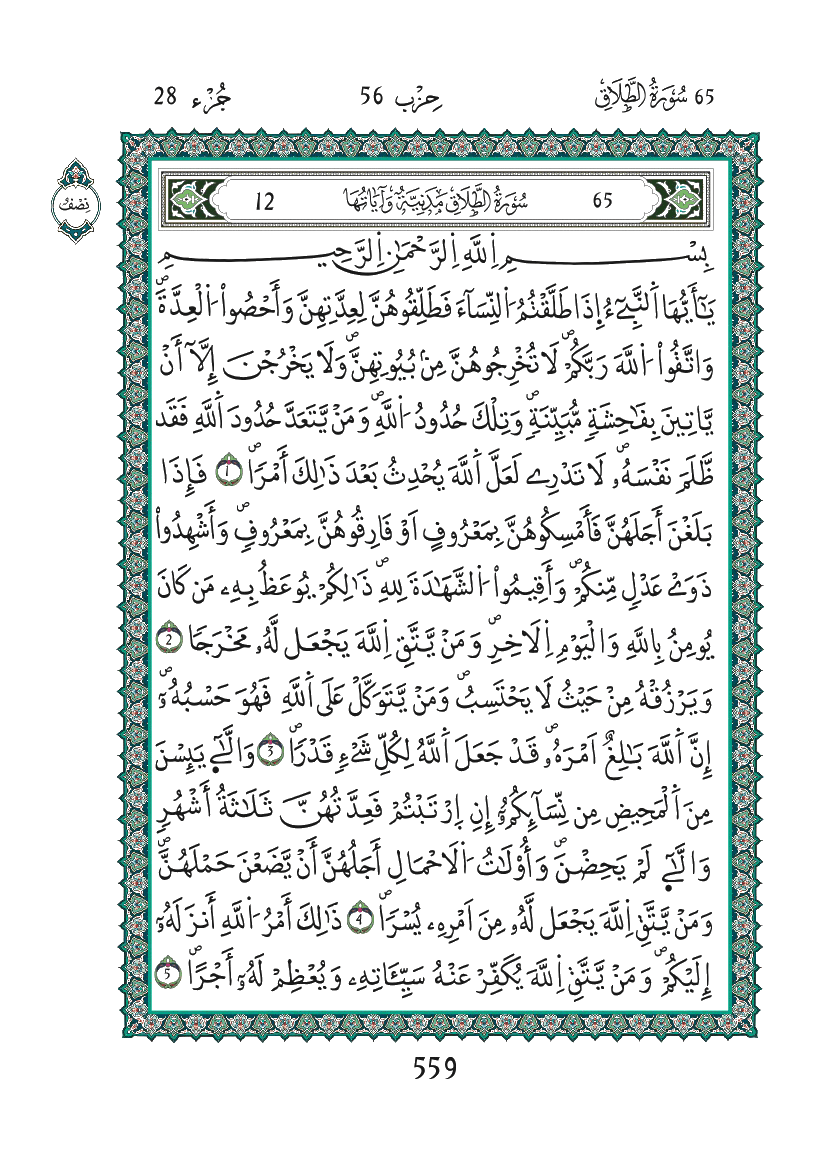 65 سُورَةُ الطَّلَاقِ حِزْب 56 جُزْء 28
نِصْفُ
65 سُورَةُ الطَّلَاقِ مَدَنِيَّةٌ وَآيَاتُهَا 12
بِسْمِ اِ۬للَّهِ اِ۬لرَّحْمَٰنِ اِ۬لرَّحِيمِ
يَٰٓأَيُّهَا اَ۬لنَّبِےٓءُ إِذَا طَلَّقْتُمُ اُ۬لنِّسَآءَ فَطَلِّقُوهُنَّ لِعِدَّتِهِنَّ وَأَحْصُواْ اُ۬لْعِدَّةَۖ
وَاتَّقُواْ اُ۬للَّهَ رَبَّكُمْۖ لَا تُخْرِجُوهُنَّ مِنۢ بُيُوتِهِنَّۖ وَلَا يَخْرُجْنَ إِلَّآ أَنْ
يَّاتِينَ بِفَٰحِشَةٖ مُّبَيِّنَةٖۖ وَتِلْكَ حُدُودُ اُ۬للَّهِۖ وَمَنْ يَّتَعَدَّ حُدُودَ اَ۬للَّهِ فَقَد
ظَّلَمَ نَفْسَهُۥۖ لَا تَدْرِے لَعَلَّ اَ۬للَّهَ يُحْدِثُ بَعْدَ ذَٰلِكَ أَمْراٗۖ 1 فَإِذَا
بَلَغْنَ أَجَلَهُنَّ فَأَمْسِكُوهُنَّ بِمَعْرُوفٍ اَوْ فَارِقُوهُنَّ بِمَعْرُوفٖۖ وَأَشْهِدُواْ
ذَوَےْ عَدْلٖ مِّنكُمْۖ وَأَقِيمُواْ اُ۬لشَّهَٰدَةَ لِلهِۖ ذَٰلِكُمْ يُوعَظُ بِهِۦ مَن كَانَ
يُومِنُ بِاللَّهِ وَالْيَوْمِ اِ۬لَاخِرِۖ وَمَنْ يَّتَّقِ اِ۬للَّهَ يَجْعَل لَّهُۥ مَخْرَجاٗ 2
وَيَرْزُقْهُ مِنْ حَيْثُ لَا يَحْتَسِبُۖ وَمَنْ يَّتَوَكَّلْ عَلَى اَ۬للَّهِ فَهُوَ حَسْبُهُۥٓۖ
إِنَّ اَ۬للَّهَ بَٰلِغٌ اَمْرَهُۥۖ قَدْ جَعَلَ اَ۬للَّهُ لِكُلِّ شَےْءٖ قَدْراٗۖ 3 وَالَّٰٓے يَئِسْنَ
مِنَ اَ۬لْمَحِيضِ مِن نِّسَآئِكُمُۥٓ إِنِ اِ۪رْتَبْتُمْ فَعِدَّتُهُنَّ ثَلَٰثَةُ أَشْهُرٖ
وَالَّٰٓے لَمْ يَحِضْنَۖ وَأُوْلَٰتُ اُ۬لَاحْمَالِ أَجَلُهُنَّ أَنْ يَّضَعْنَ حَمْلَهُنَّۖ
وَمَنْ يَّتَّقِ اِ۬للَّهَ يَجْعَل لَّهُۥ مِنَ اَمْرِهِۦ يُسْراٗۖ 4 ذَٰلِكَ أَمْرُ اُ۬للَّهِ أَنزَلَهُۥٓ
إِلَيْكُمْۖ وَمَنْ يَّتَّقِ اِ۬للَّهَ يُكَفِّرْ عَنْهُ سَيِّـَٔاتِهِۦ وَيُعْظِمْ لَهُۥٓ أَجْراًۖ 5
559